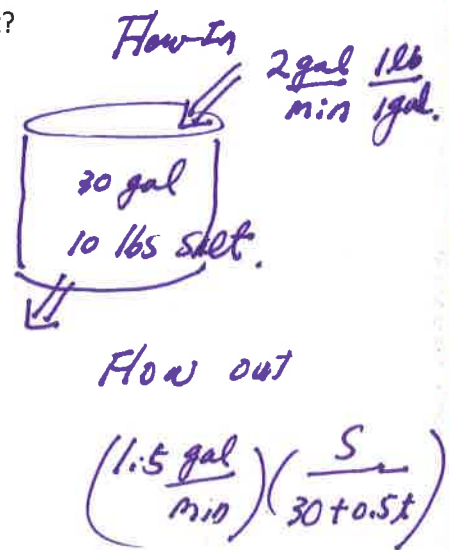 ?
Flow-In
2 gal/min 1 lb/1 gal.
30 gal
10 lbs salt.
Flow out
(1.5 gal/min)(S/30+0.5t)